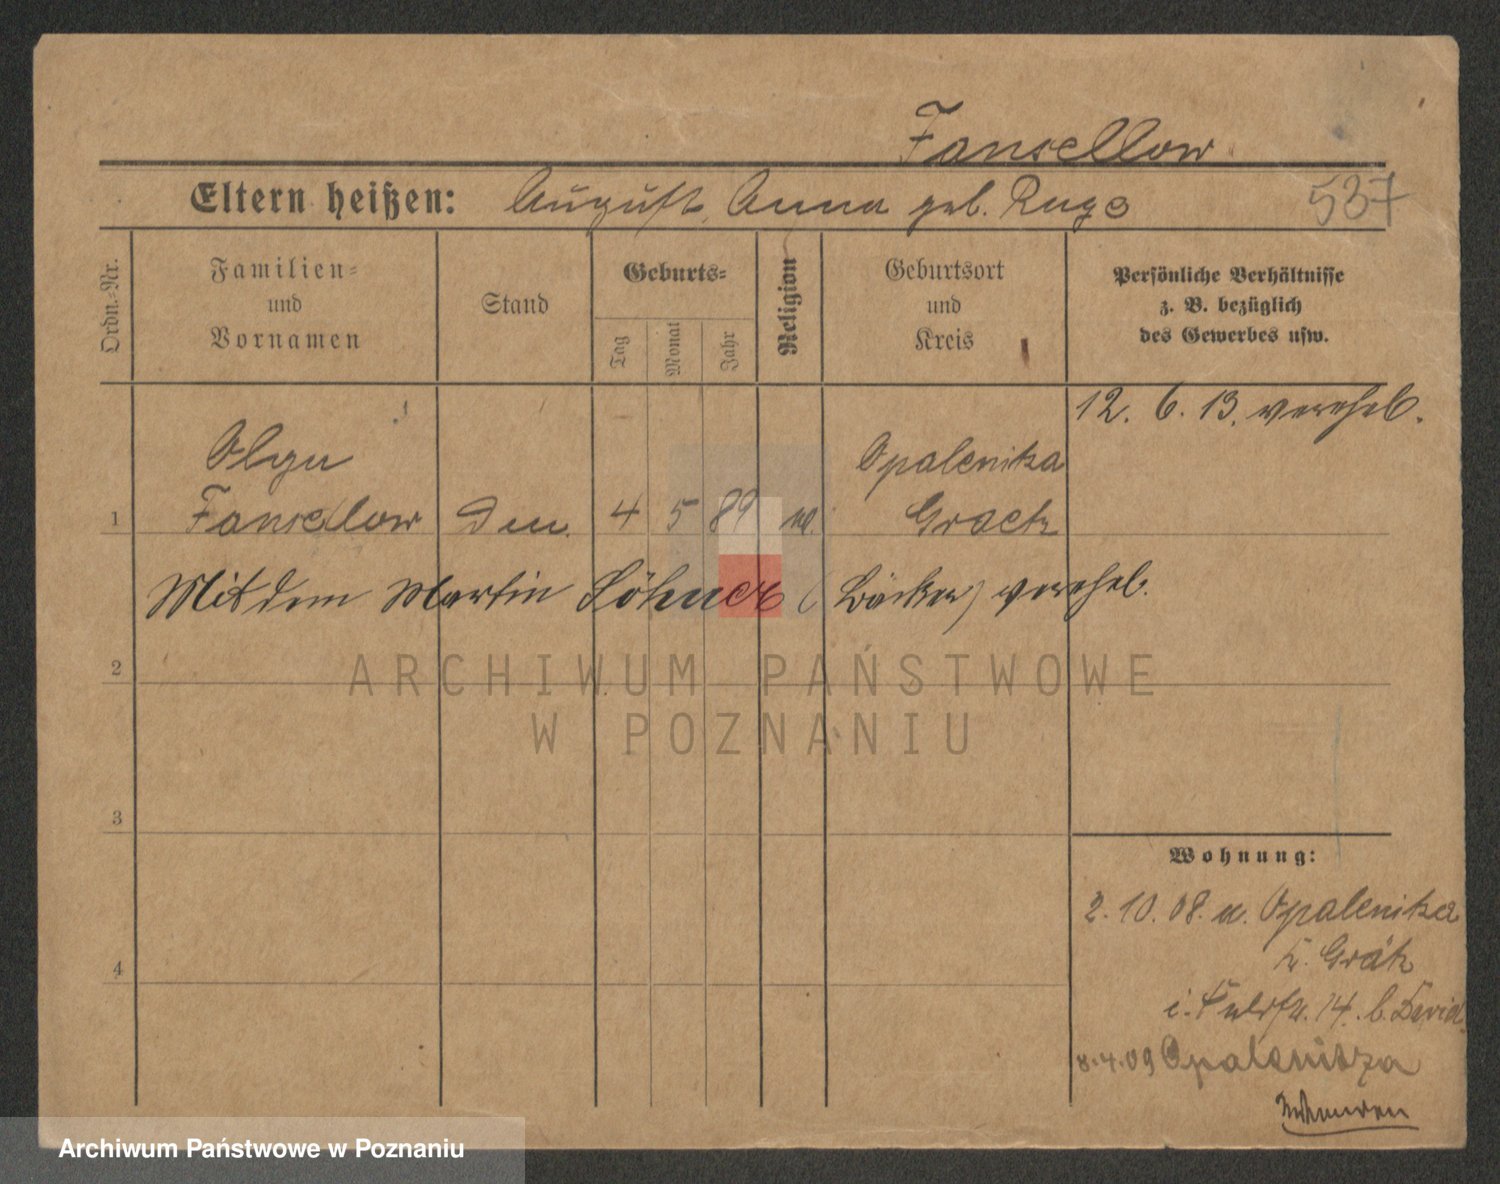 Fansellow
Eltern heißen: August, Anna geb. Ruge
537
Ordn.-Nr.
Familien-
und
Vornamen
Stand
Geburts-
Tag
Monat
Jahr
Religion
Geburtsort
und
Kreis
Persönliche Verhältnisse
z. B. bezüglich
des Gewerbes usw.
12. 6. 13. verehel.
Olga Opalenitza
1 Fansellow 4 5 89 Graetz
Mit dem Martin Löhnert (Bäcker) verehel.
2
ARCHIWUM PAŃSTWOWE
W POZNANIU
3
Wohnung:
2. 10. 08. a. Opalenitza
K. Grätz
4
14. b. David
8.4.09 Opalenitza
Archiwum Państwowe w Poznaniu